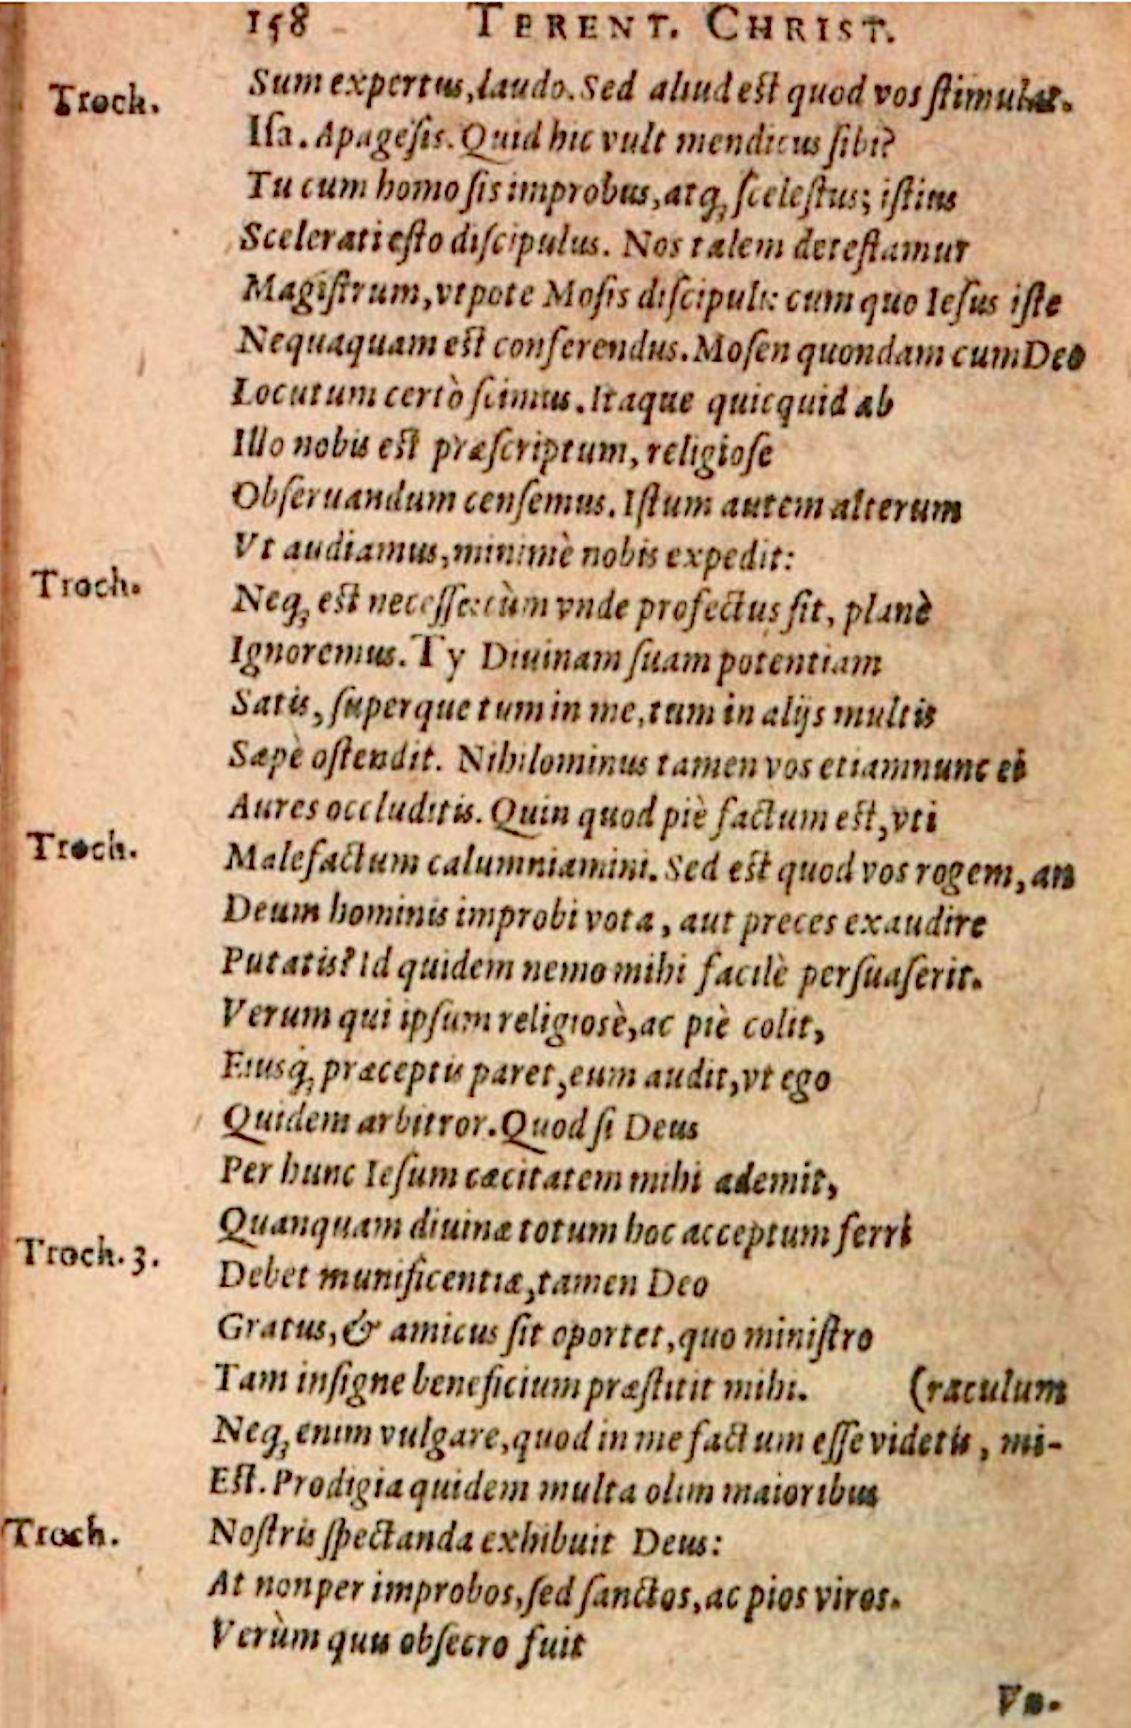 158 TERENT. CHRIST.
Troch. Sum expertus, laudo. Sed aliud est quod vos stimulat.
Isa. Apagesis. Quid hic vult mendicus sibi?
Tu cum homo sis improbus, atq; scelestus; istius
Scelerati esto discipulus. Nos talem detestamur
Magistrum, vtpote Mosis discipuli: cum quo Iesus iste
Nequaquam est conferendus. Mosen quondam cum Deo
Locutum certò scimus. Itaque quicquid ab
Illo nobis est præscriptum, religiose
Obseruandum censemus. Istum autem alterum
Vt audiamus, minimè nobis expedit:
Troch. Neq; est necesse: cùm vnde profectus sit, planè
Ignoremus. Ty Diuinam suam potentiam
Satis, superque tum in me, tum in alijs multis
Sæpè ostendit. Nihilominus tamen vos etiamnunc ei
Aures occluditis. Quin quod piè factum est, vti
Troch. Malefactum calumniamini. Sed est quod vos rogem, an
Deum hominis improbi vota, aut preces exaudire
Putatis? Id quidem nemo mihi facilè persuaserit.
Verum qui ipsum religiosè, ac piè colit,
Eiusq́; præceptis paret, eum audit, vt ego
Quidem arbitror. Quod si Deus
Per hunc Iesum cæcitatem mihi ademit,
Quanquam diuinæ totum hoc acceptum ferri
Troch. 3. Debet munificentiæ, tamen Deo
Gratus, & amicus sit oportet, quo ministro
Tam insigne beneficium præstitit mihi. (raculum
Neq; enim vulgare, quod in me factum esse videtis, mi-
Est. Prodigia quidem multa olim maioribus
Troch. Nostris spectanda exhibuit Deus:
At non per improbos, sed sanctos, ac pios viros.
Verùm quis obsecro fuit
Vn-